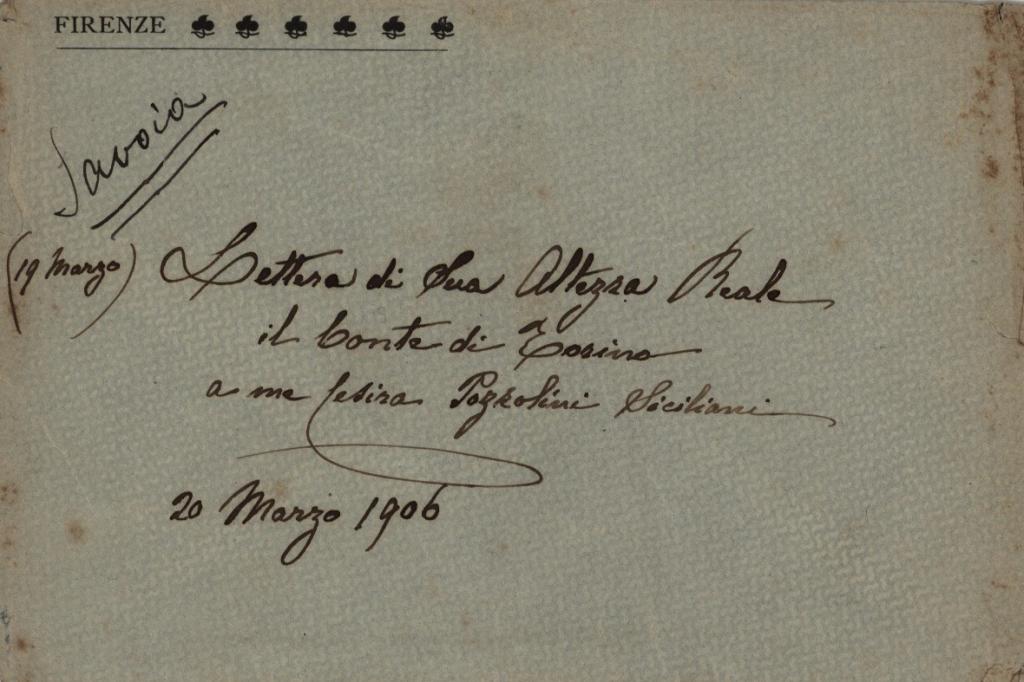 FIRENZE
Savoia
(19 Marzo) Lettera di Sua Altezza Reale
il Conte di Torino
a me Cesira Pozzolini Siciliani
20 Marzo 1906